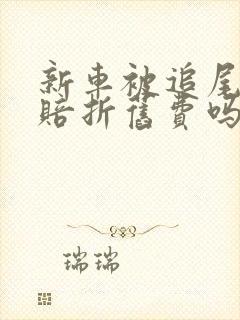 新車被追尾
賠折舊費嗎
瑞瑞